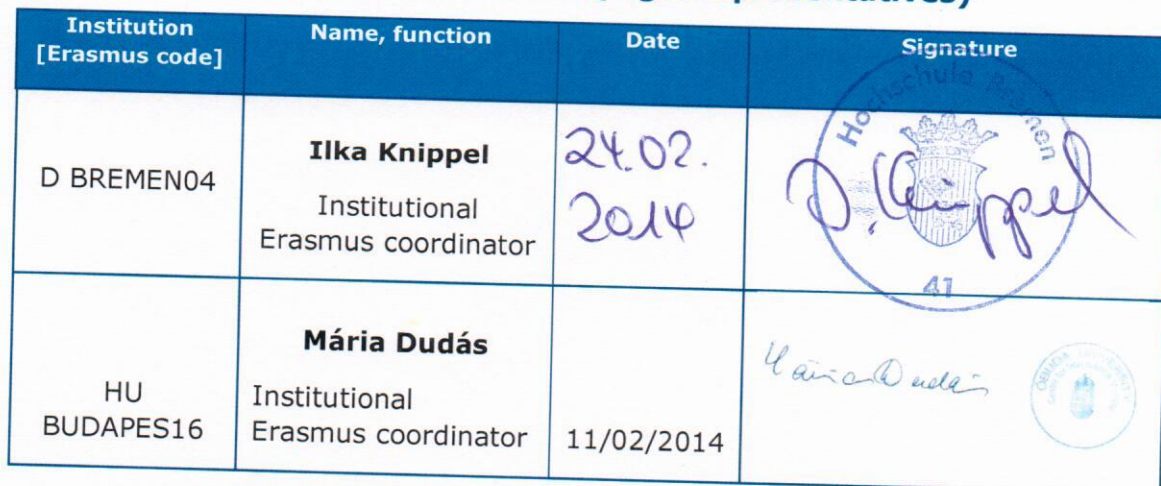 Institution
[Erasmus code]
Name, function
Date
Signature
D BREMEN04
Ilka Knippel
Institutional
Erasmus coordinator
24.02.
2014
Hochschule Bremen
41
I. Knippel
HU
BUDAPES16
Mária Dudás
Institutional
Erasmus coordinator
11/02/2014
Mária Dudás
ÓBUDA UNIVERSITY